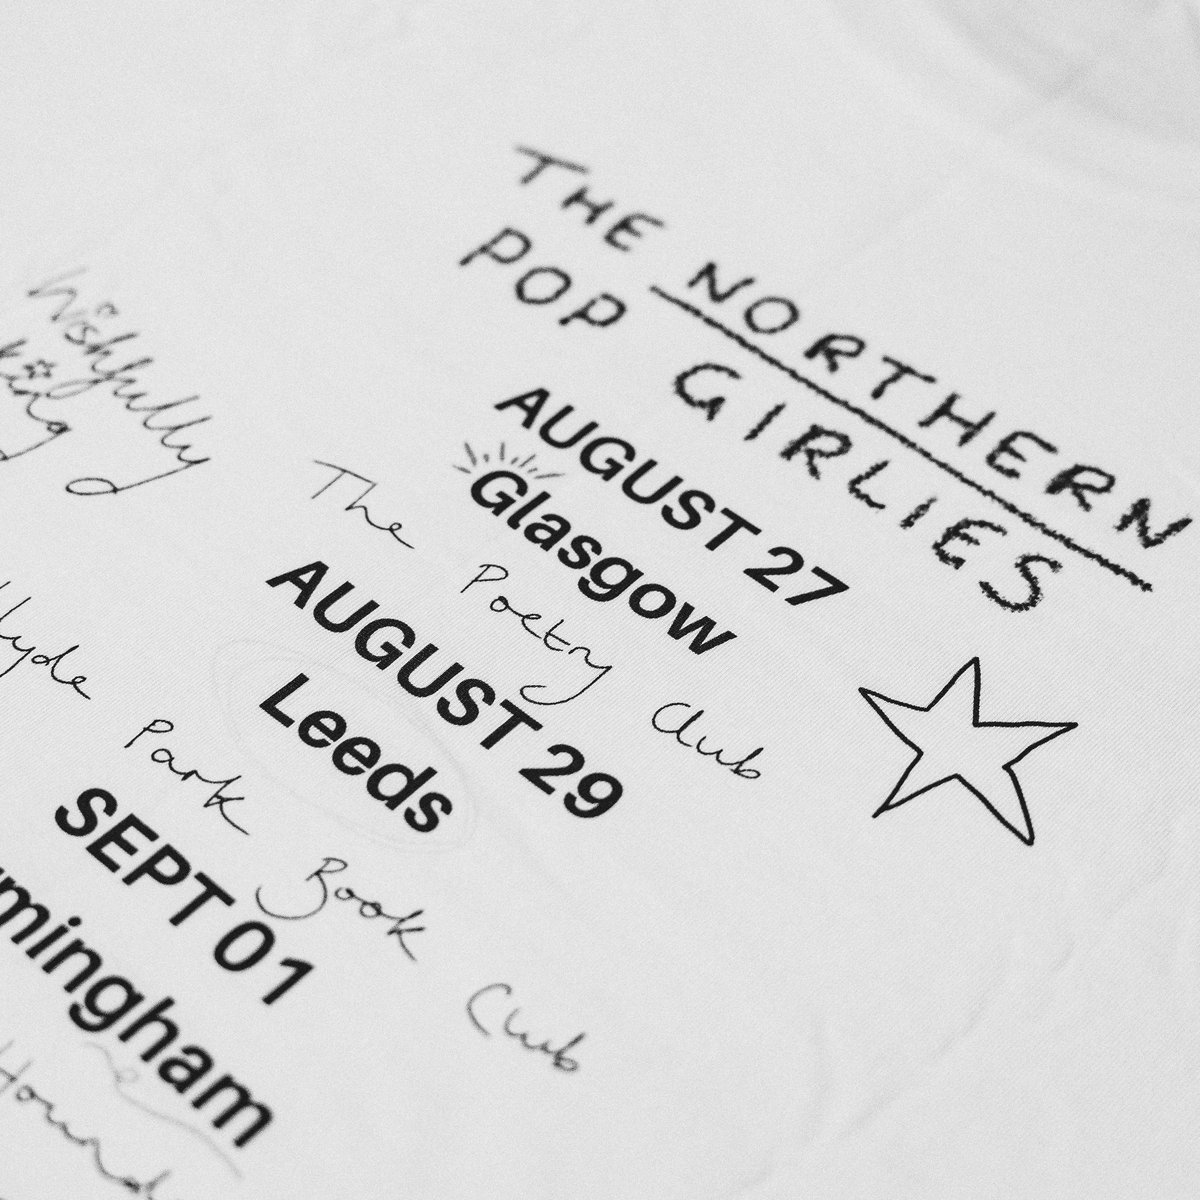 THE NORTHERN
POP GIRLIES
Wishfully
AUGUST 27
Glasgow
The Poetry Club
AUGUST 29
Leeds
Hyde Park Book Club
SEPT 01
mingham